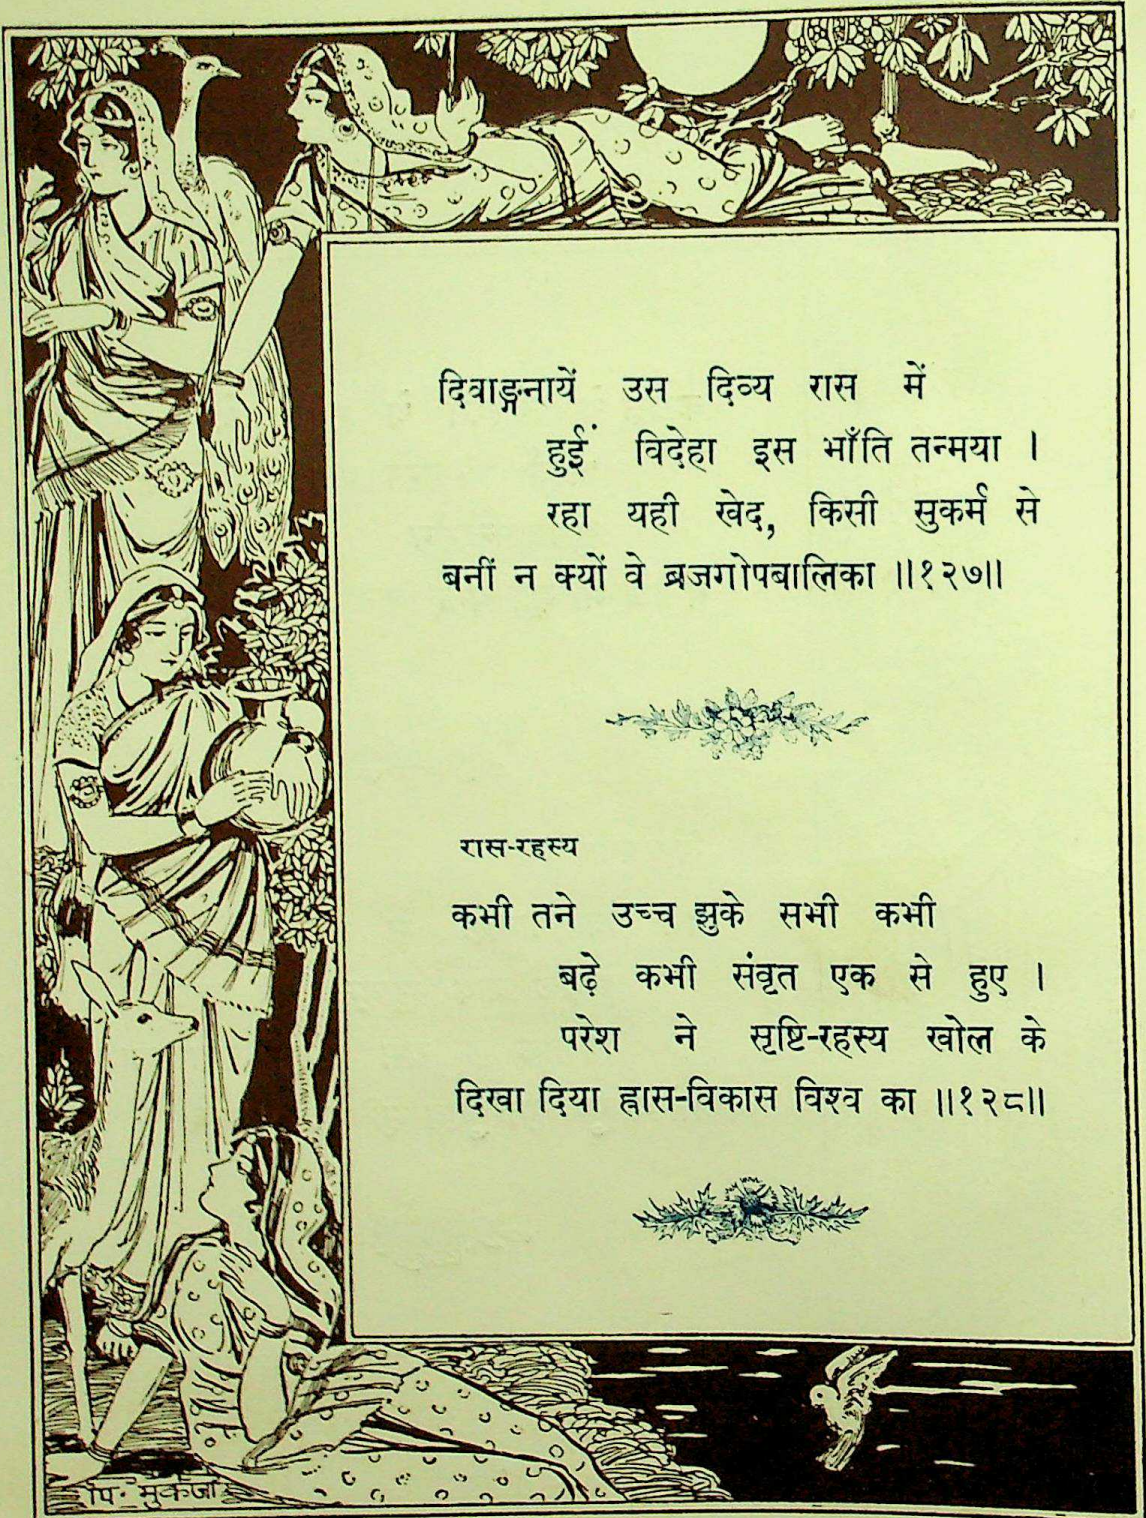 दिवाङ्गनायें उस दिव्य रास में
हुईं विदेहा इस भाँति तन्मया ।
रहा यही खेद, किसी सुकर्म से
बनीं न क्यों वे ब्रजगोपबालिका ॥१२७॥
रास-रहस्य
कभी तने उच्च झुके सभी कभी
बढ़े कभी संवृत एक से हुए ।
परेश ने सृष्टि-रहस्य खोल के
दिखा दिया ह्रास-विकास विश्व का ॥१२८॥
पि. मुकर्जी